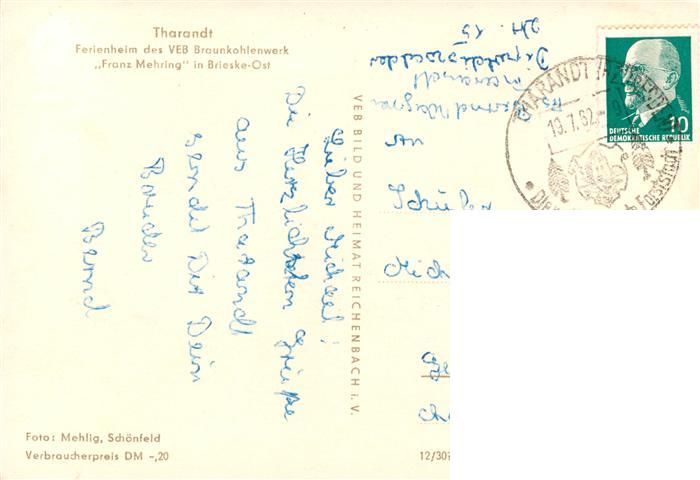 Tharandt
Ferienheim des VEB Braunkohlenwerk
„Franz Mehring" in Brieske-Ost
Lieber Michael!
Die Herzlichsten Grüße
aus Tharandt
sendet Dir Dein
Bruder
Bernd
VEB BILD UND HEIMAT REICHENBACH i. V.
Bernd Wagner
Tharandt
ZH. 15
An
Schüler
Mich
THARANDT
10.7.62
Die
Forststadt
10
DEUTSCHE
DEMOKRATISCHE REPUBLIK
Foto: Mehlig, Schönfeld
Verbraucherpreis DM -,20
12/307